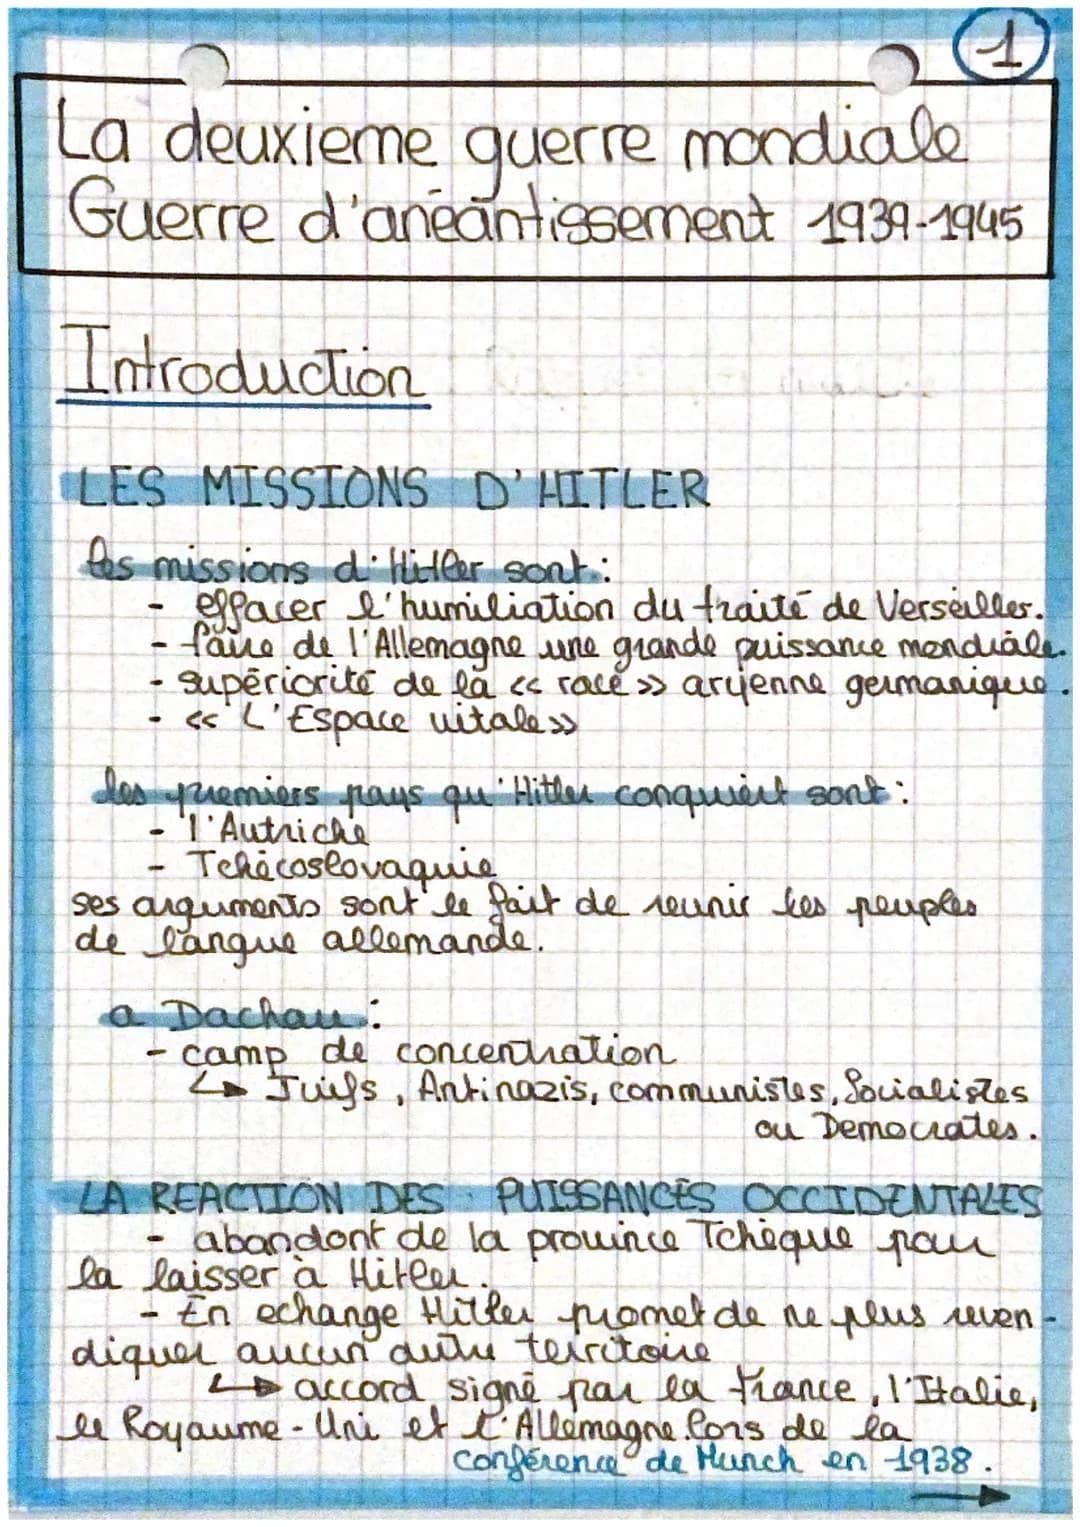 1
La deuxieme guerre mondiale
Guerre d'anéantissement 1939-1945
Introduction
LES MISSIONS D'HITLER
les missions d'Hitler sont :
- effacer l'humiliation du traité de Verseilles.
- faire de l'Allemagne une grande puissance mondiale.
- supériorité de la << race >> aryenne germanique.
- << L'Espace vitale >>
les premiers pays qu'Hitler conquiert sont :
- l'Autriche
- Tchécoslovaquie
ses arguments sont le fait de reunir les peuples
de langue allemande.
a Dachau :
- camp de concentration
↳ Juifs, Antinazis, communistes, Socialistes
ou Democrates.
LA REACTION DES PUISSANCES OCCIDENTALES
- abandont de la province Tchèque pour
la laisser à Hitler.
- En echange Hitler promet de ne plus reven-
diquer aucun autre territoire
↳ accord signé par la France, l'Italie,
le Royaume-Uni et l'Allemagne lors de la
conférence de Munch en 1938.